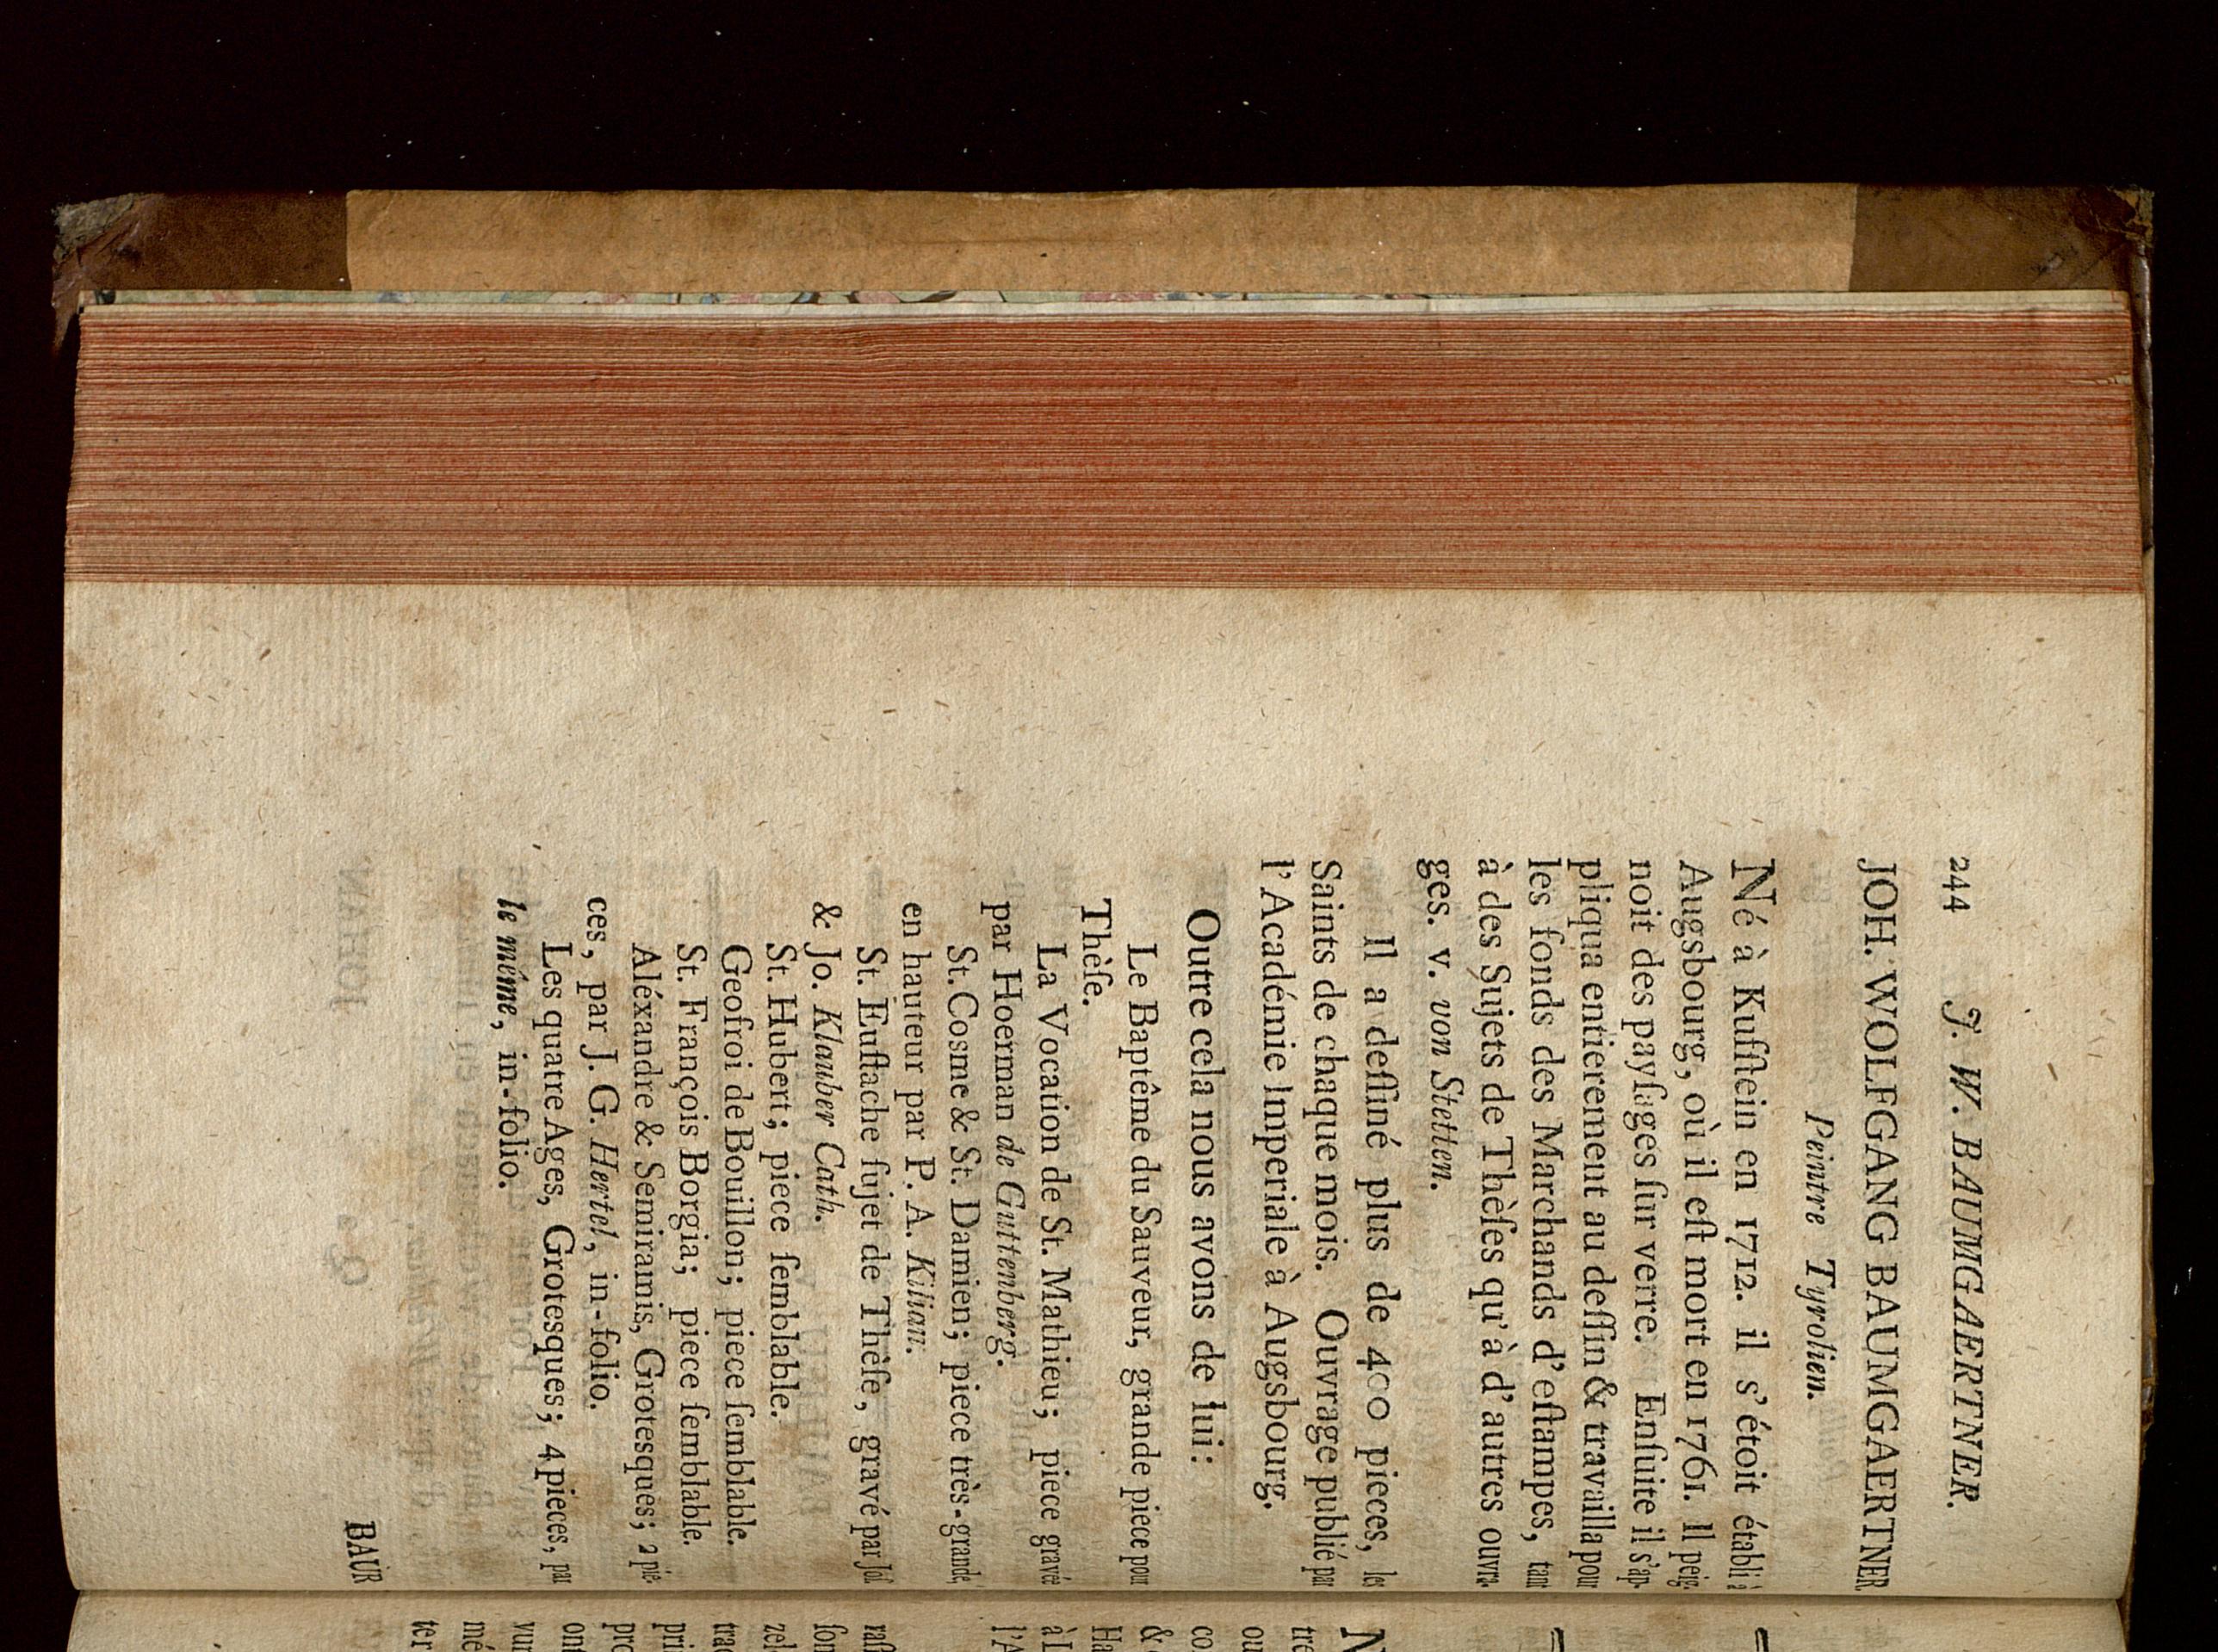 244 J. W. BAUMGAERTNER.
JOH. WOLFGANG BAUMGAERTNER
Peintre Tyrolien.
Né à Kufſtein en 1712. il s'étoit établi à
Augsbourg, où il eſt mort en 1761. Il peig-
noit des payſages ſur verre. Enſuite il s'ap-
pliqua entierement au deſſin & travailla pour
les fonds des Marchands d'eſtampes, tant
à des Sujets de Thèſes qu'à d'autres ouvra-
ges. v. von Stetten.
Il a deſſiné plus de 400 pieces, les
Saints de chaque mois. Ouvrage publié par
l'Académie Imperiale à Augsbourg.
Outre cela nous avons de lui:
Le Baptême du Sauveur, grande piece pour
Thèſe.
La Vocation de St. Mathieu; piece gravée
par Hoerman de Guttenberg.
St. Cosme & St. Damien; piece très-grande,
en hauteur par P. A. Kilian.
St. Euſtache ſujet de Thèſe, gravé par Joſ.
& Jo. Klauber Cath.
St. Hubert; piece ſemblable.
Geofroi de Bouillon; piece ſemblable.
St. François Borgia; piece ſemblable.
Aléxandre & Semiramis, Grotesques; 2 pie-
ces, par J. G. Hertel, in-folio.
Les quatre Ages, Grotesques; 4 pieces, par
le méme, in-folio.
BAUR
N
tre
ou
co
&
Ha
à L
l'A
raſ
ſon
zel
trac
pri
pro
ont
vur
mé
ter